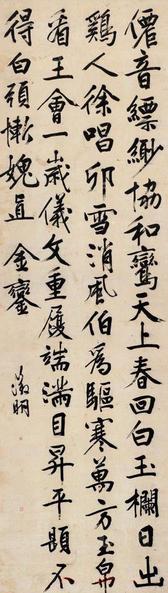 僊音縹緲協和鸞天上春回白玉欄日出
鷄人徐唱卯雪消風伯爲驅寒萬方玉帛
看王會一歲儀文重履端滿目昇平題不
得白頭慚愧直金鑾
徵明